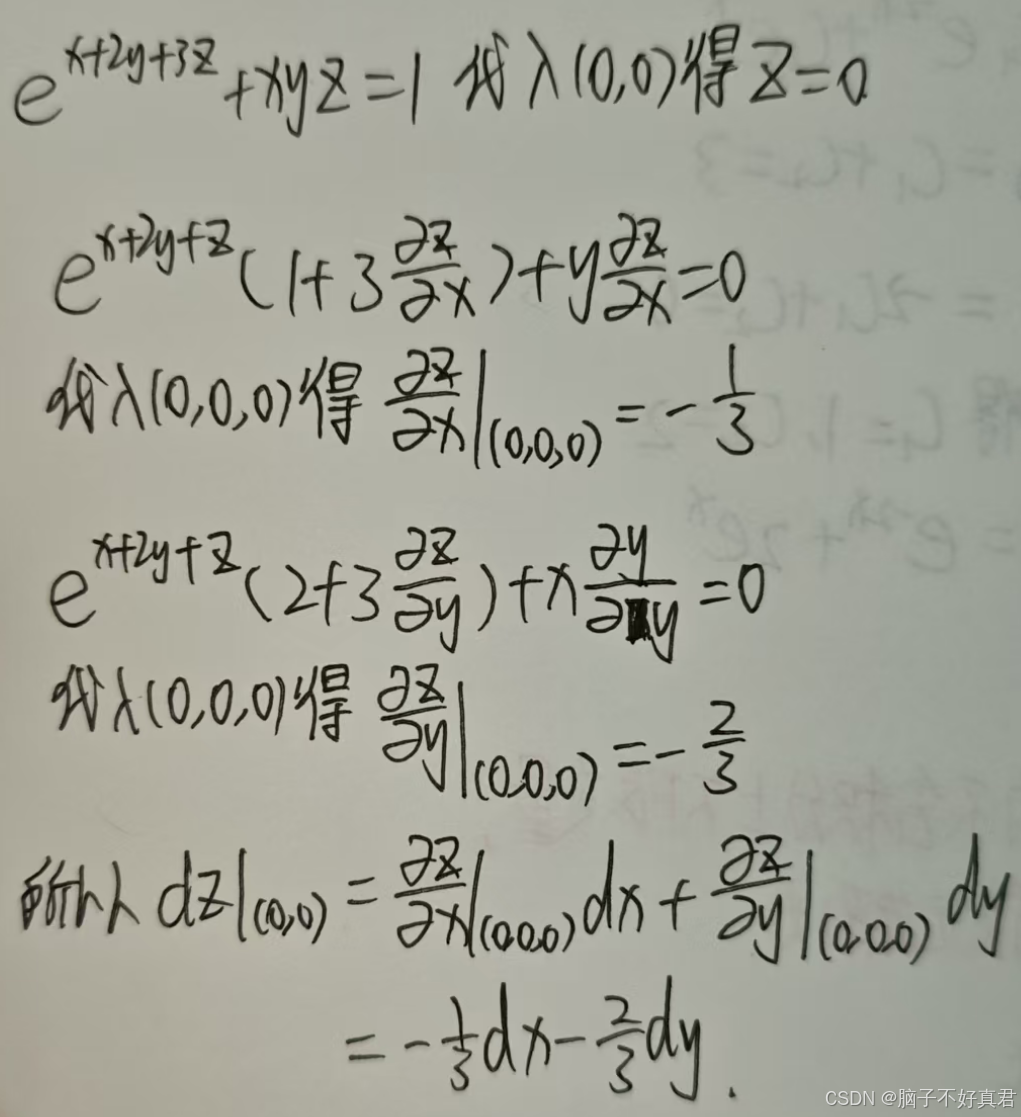 e^{x+2y+3z}+xyz=1 代入(0,0)得z=0
e^{x+2y+z}(1+3∂z/∂x)+y∂z/∂x=0
代入(0,0,0)得 ∂z/∂x|(0,0,0)=-1/3
e^{x+2y+z}(2+3∂z/∂y)+x∂y/∂y=0
代入(0,0,0)得 ∂z/∂y|(0,0,0)=-2/3
所以 dz|(0,0)=∂z/∂x|(0,0,0)dx+∂z/∂y|(0,0,0)dy
=-1/3dx-2/3dy.
CSDN @脑子不好真君